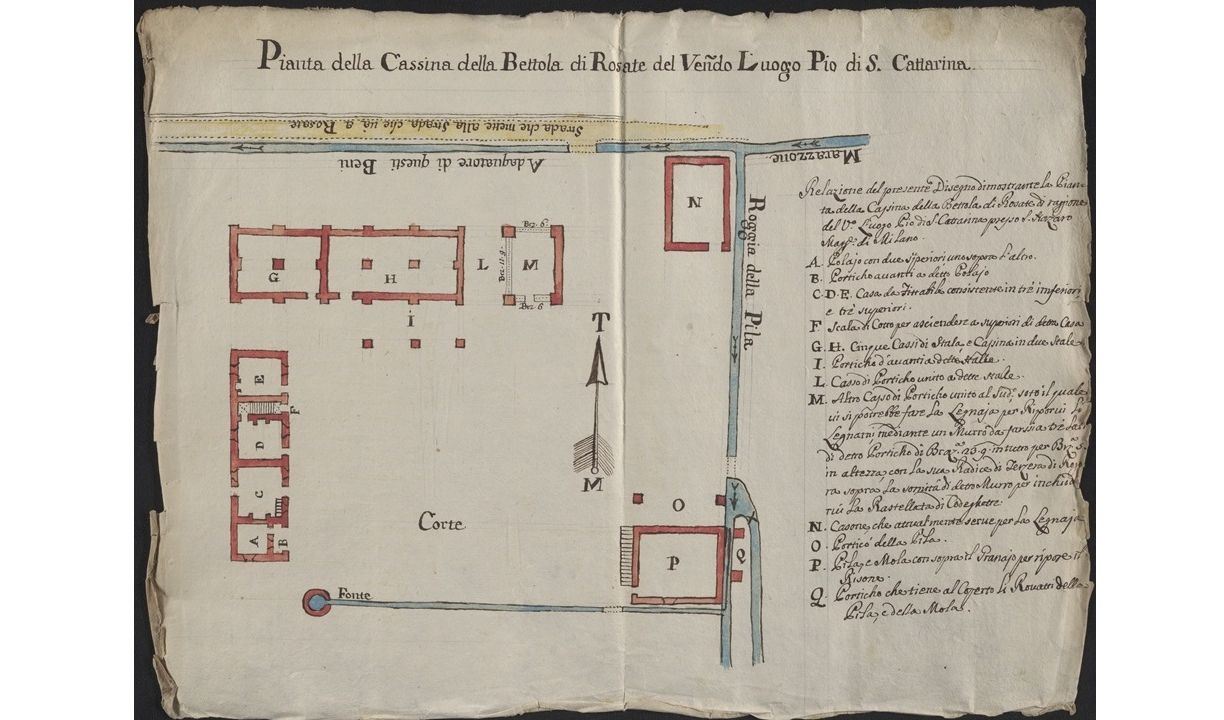 Pianta della Cassina della Bettola di Rosate del Veñdo Luogo Pio di S. Cattarina
Strada che mette alla Strada che uà a Rosate
Adaquatore di questi Beni
Marazzone
Roggia della Pila
N
Brz. 6
G
H
L
M
Brz. 6
I
T
M
E
F
D
C
A
B
Corte
O
P
Q
Fonte
Relazione del presente Disegno dimostrante la Pian-
ta della Cassina della Bettola di Rosate di raggione
del V.º Luogo Pio di S. Cattarina presso S. Nazaro
di Milano.
A. Polajo con due superiori uno sopra l'altro.
B. Porticho auanti a detto Polajo
C. D. E. Casa da Fittabile consistente in trè inferiori
e trè superiori.
F. Scala di Cotto per asciendere a superiori di detta Casa
G. H. Cinque Cassi di Stala e Cassina in due Stale
I. Porticho d'auanti a dette stalle.
L. Casso di Porticho unito a dette stalle.
M. Altro Casso di Porticho unito al Sud.º soto il quale
ui si potrebbe fare la Legnaja per Riporui li
Legnami mediante un Murro da farssi a trè lati
di detto Porticho di 23. 9. in tutto per
in altezza, con la sua Radice di
ra sopra la somità di detto Murro per inchioda
rui la Rastellata di Codeghette.
N. Casone che attualmente serue per la Legnaja
O. Porticó della Pila.
P. Pila, e Mola con sopra il Granajo per ripore il
Risone.
Q. Porticho che tiene al Coperto li Rouatti della
Pila, e della Mola.